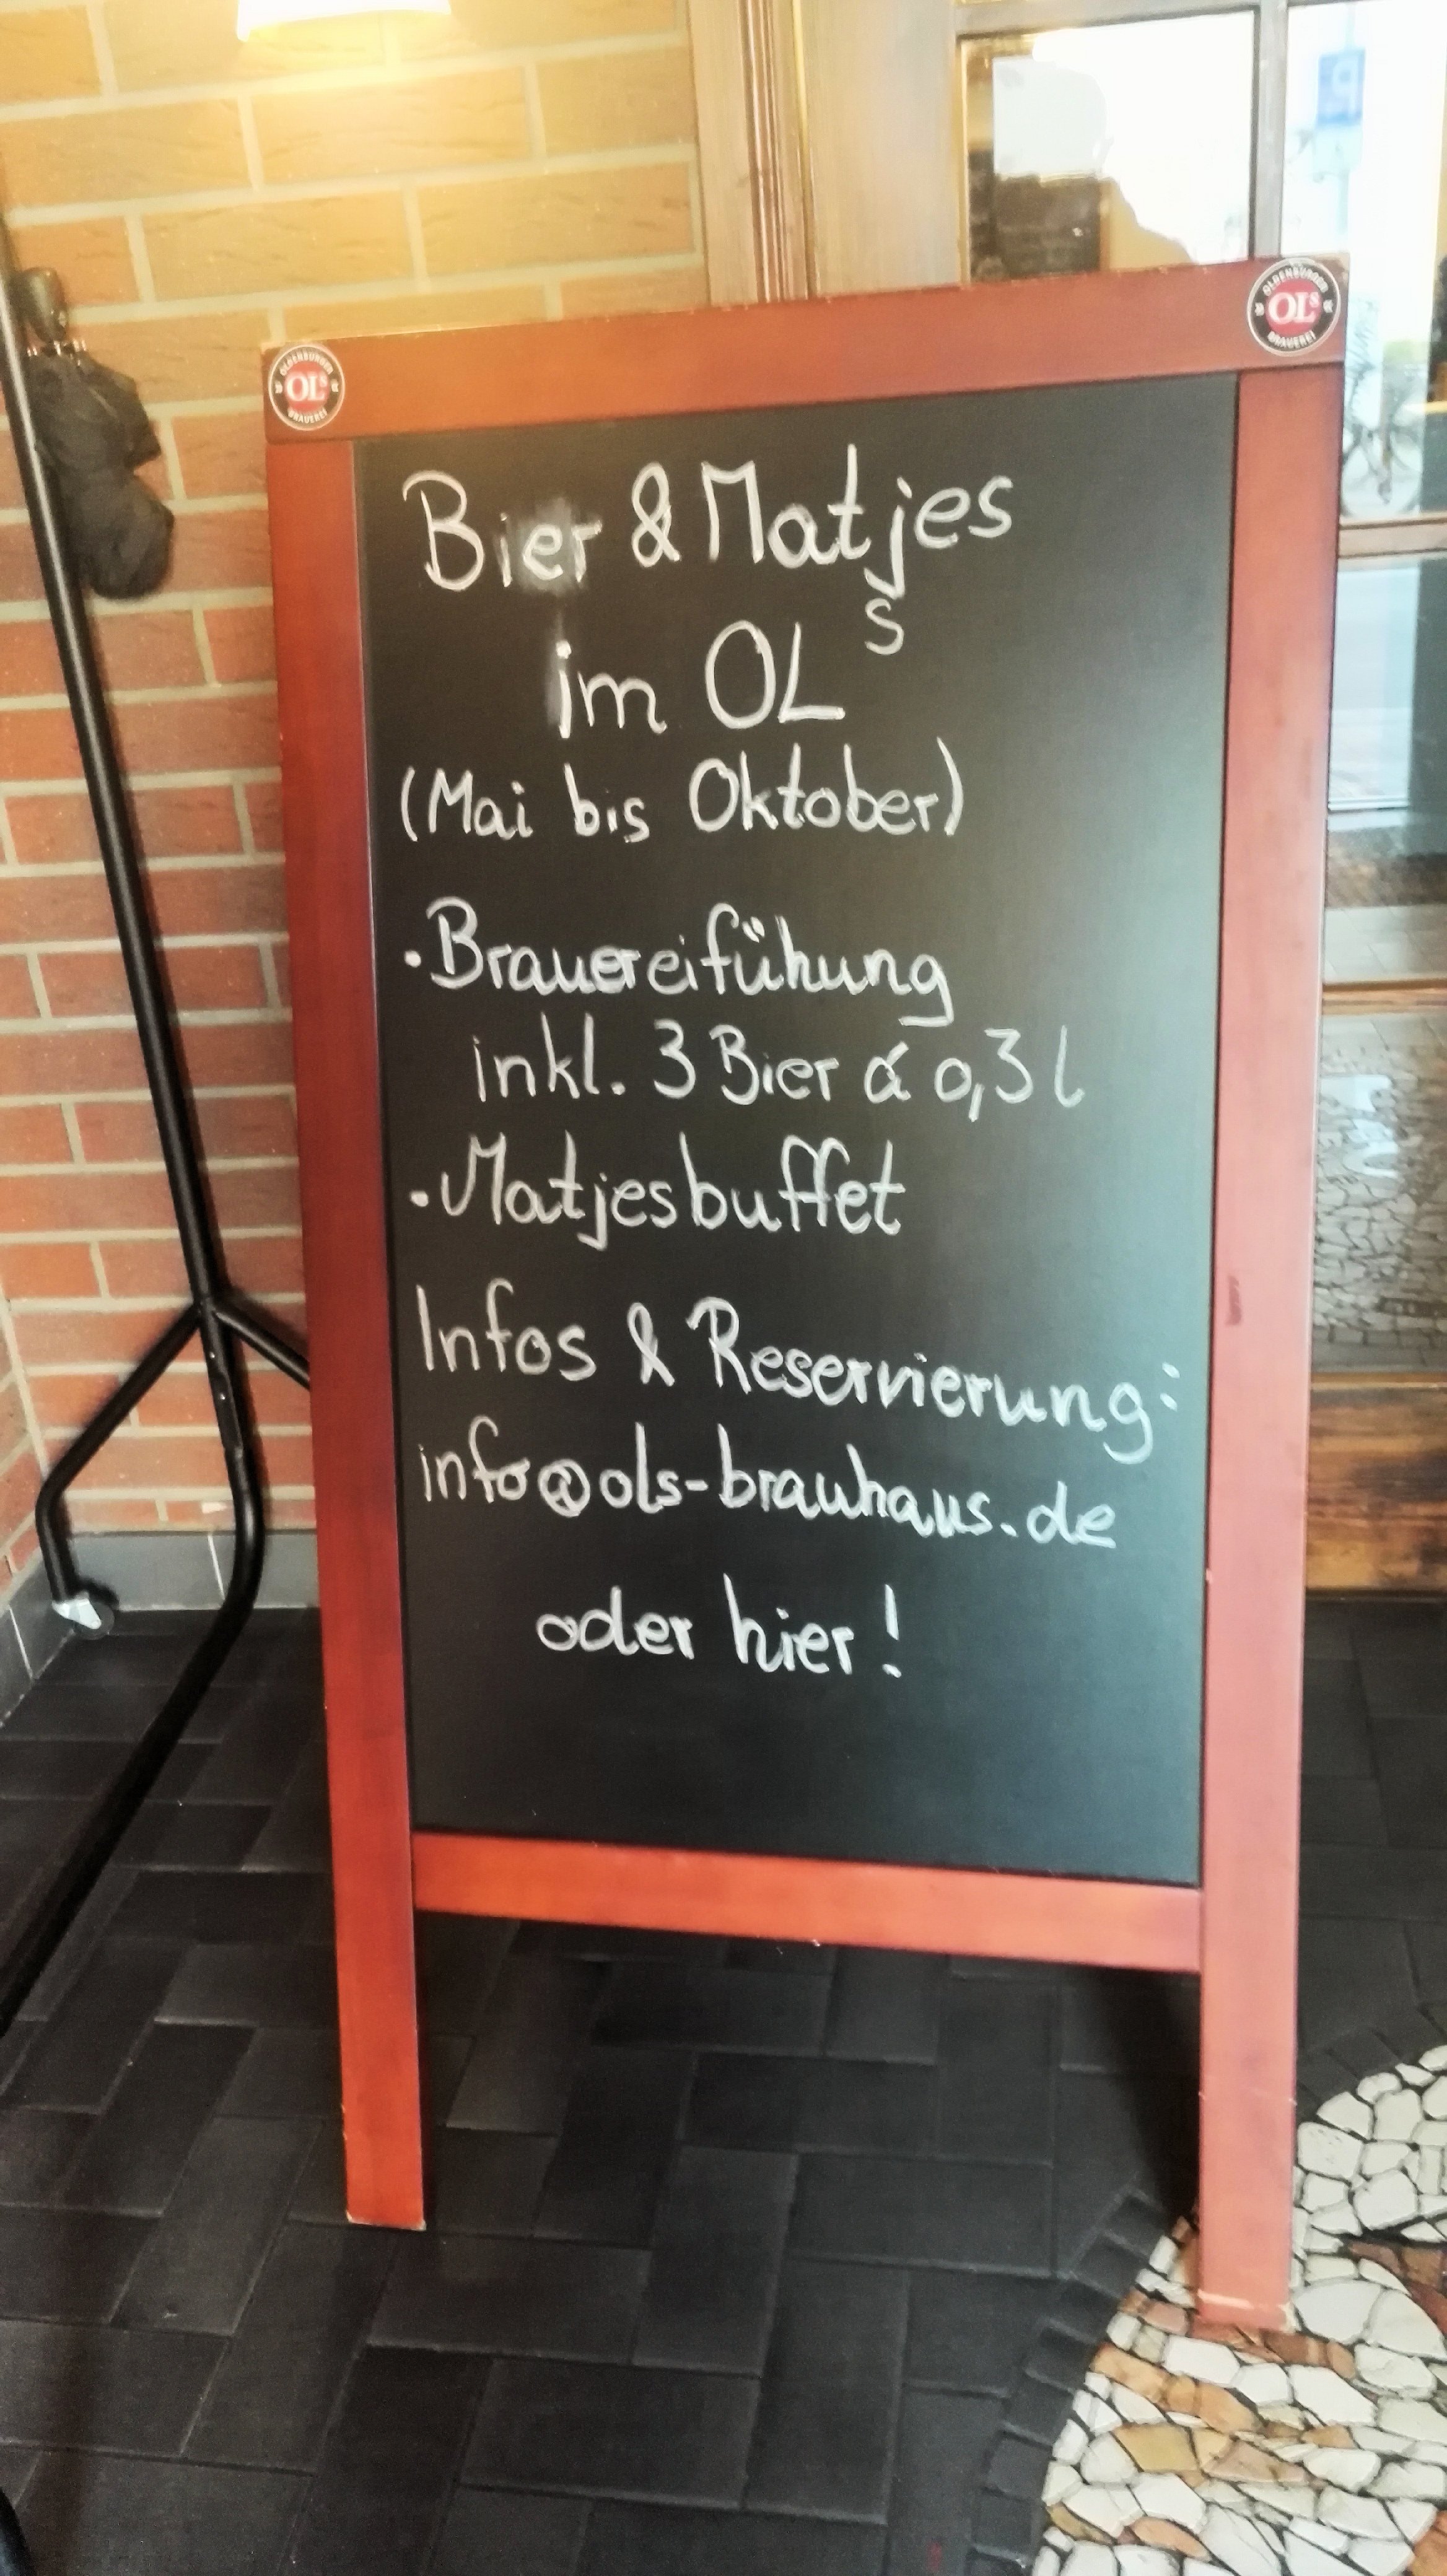 OLDENBURGER
OLs
BRAUEREI
OLDENBURGER
OLs
BRAUEREI
Bier & Matjes
im OLs
(Mai bis Oktober)
· Brauereifühung
inkl. 3 Bier á 0,3 l
· Matjesbuffet
Infos & Reservierung:
info@ols-brauhaus.de
oder hier!